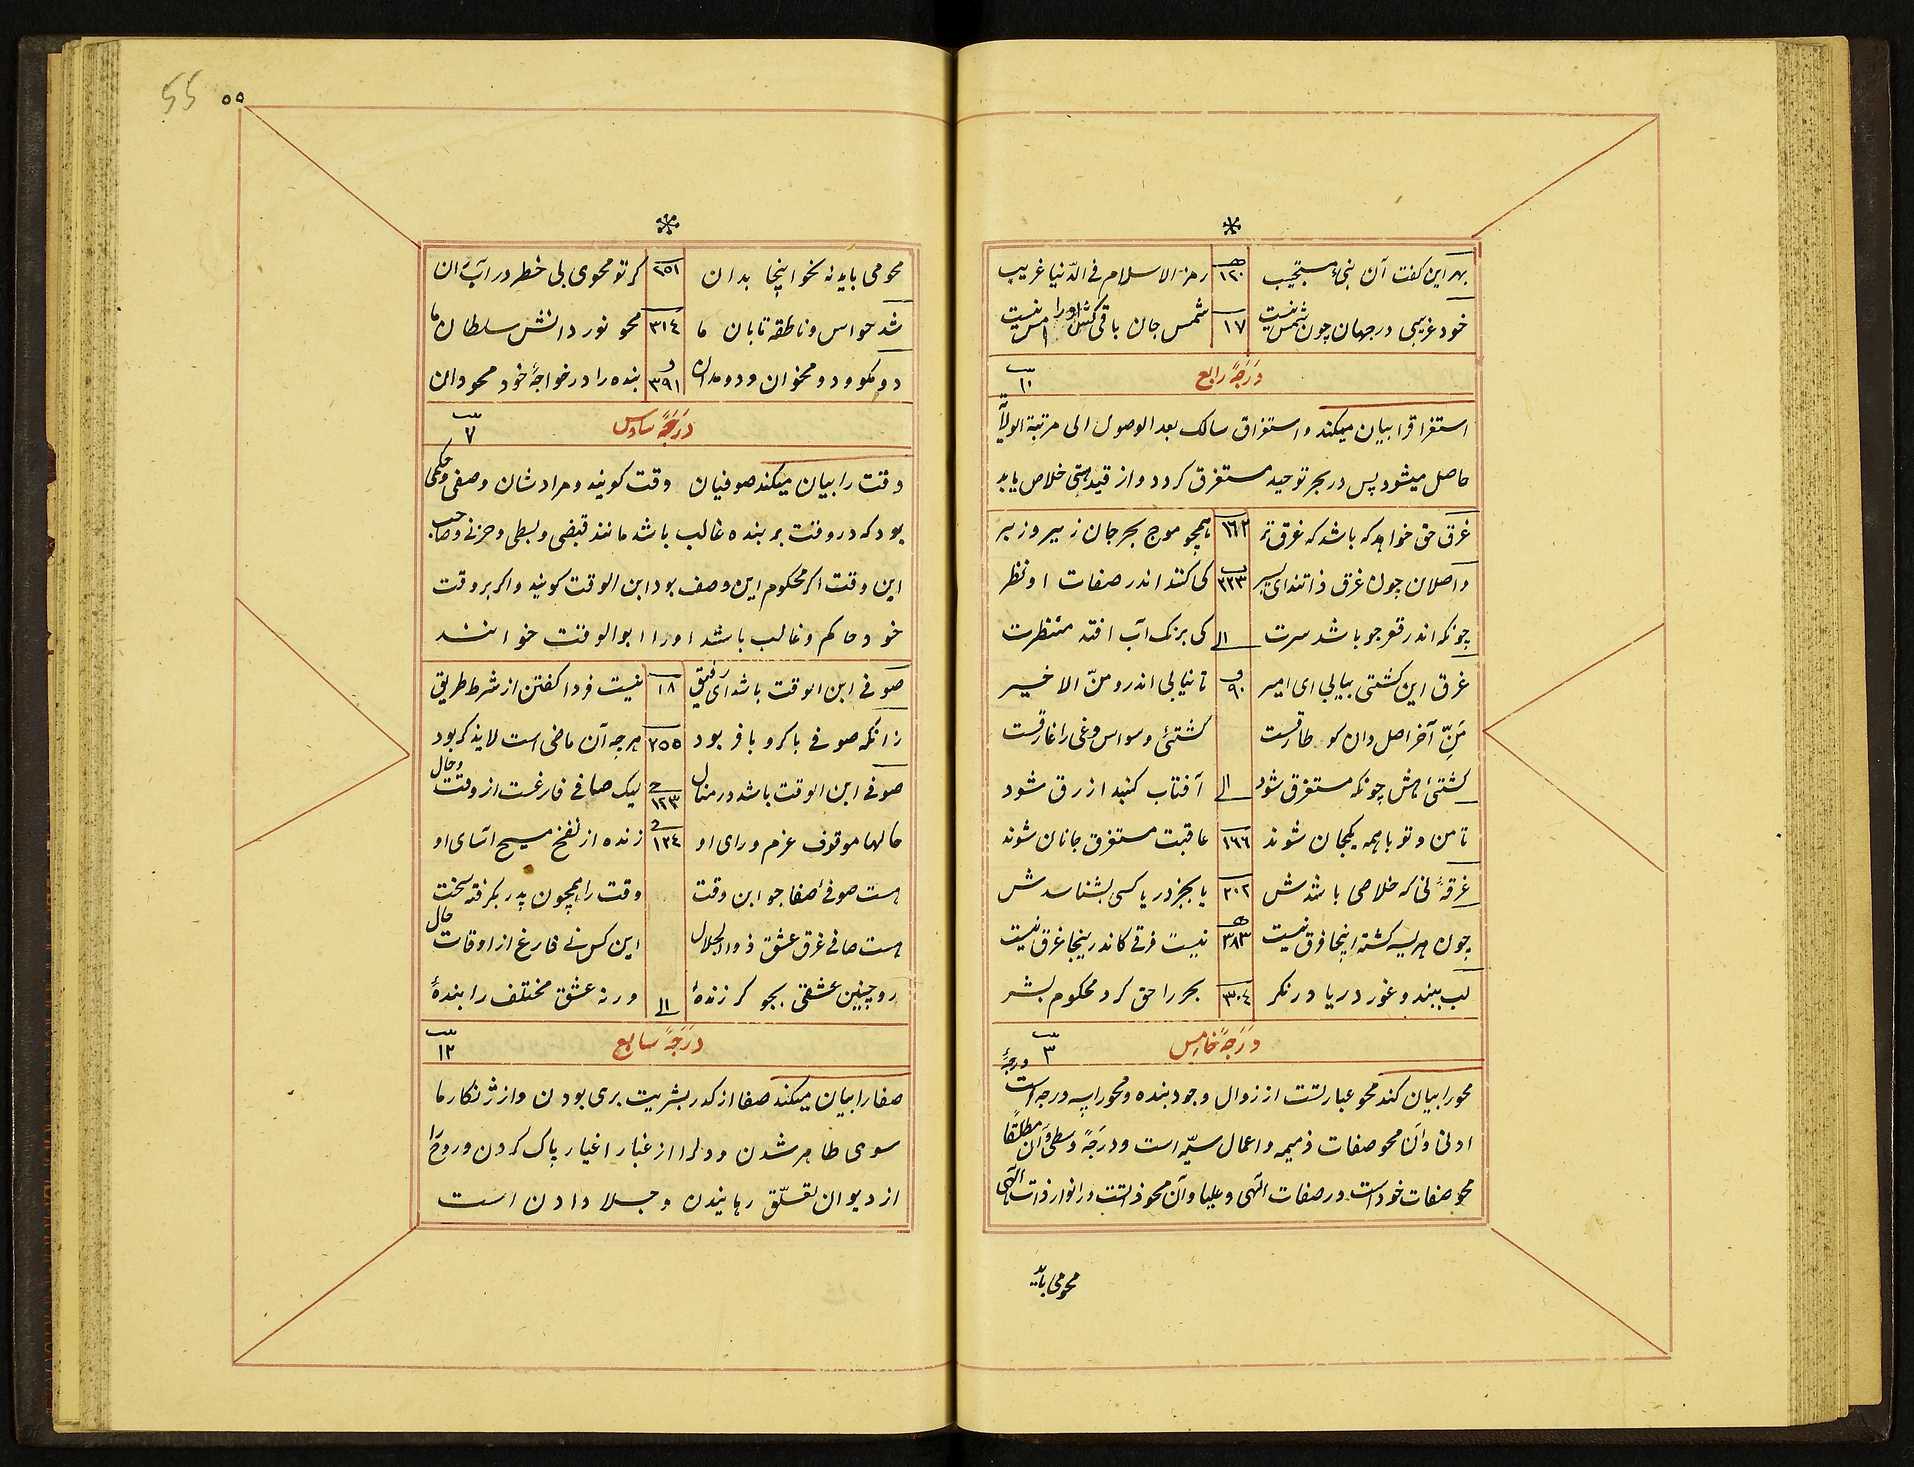 بهر این کفت آن نبیٔ مستجیب ١٢٠ رمز الاسلام فی الدّنیا غریب
خود غریبی در جهان چون شمس نیست ١٧ شمس جان باقی کش اورا امس نیست
دَرَجَهٔ رابع ١٠
استغراقرا بیان میکند و استغراق سالک بعد الوصول الی مرتبة الولایة
حاصل میشود پس در بحر توحید مستغرق کردد و از قید هستی خلاص یابد
غرق حق خواهد که باشد غرق تر ١٦٢ همچو موج بحر جان زیر و زبر
واصلان چون غرق ذاتند ای پسر ٢٢٣ کی کنند اندر صفات او نظر
چونکه اندر قعر جو باشد سرت کی برنک آب افتد منظرت
غرق این کشتی بیابی ای امیر ٩٠ تا نیابی اندرو منّ الاخیر
مَنِّ آخر اصل دان کو طارقست کشتیٔ وسواس و غی را غارقست
کشتیٔ هش چونکه مستغرق شود آفتاب کنبد ازرق شود
تا من و تو با همه یکجان شوند ١٦٦ عاقبت مستغرق جانان شوند
غرقهٔ نی که خلاصی باشدش ٣٠٢ یا بجز دریا کسی بشناسدش
چون هریسه کشته اینجا فرق نیست ٣٨٣ نیست فرقی کاندرینجا غرق نیست
لب ببند و غور دریا درنکر ٣٠٤ بحر را حق کرد محکوم بشر
دَرَجَهٔ خامس ٣
محورا بیان کند محو عبارتست از زوال وجود بنده و محورا سه درجه است درجهٔ
ادنی و آن محو صفات ذمیمه و اعمال سیّه است و درجهٔ وسطی و آن مطلقا
محو صفات خود است در صفات الٓهی و علیا و آن محو ذاتست در انوار ذات الٓهی
محو می باید
٥٥
55
محو می باید نه نحو اینجا بدان ٢٥١ کر تو محوی بی خطر در آب ران
شد حواس و ناطقه تابان ما ٣١٤ محو نور دانش سلطان ما
دو مکو و دو مخوان و دو مدان ٣٩١ بنده را در خواجهٔ خود محو دان
دَرَجَهٔ سادس ٧
وقت را بیان میکند صوفیان وقت کویند و مرادشان وصفی و حکمی
بود که در وقت بر بنده غالب باشد مانند قبضی و بسطی و حزنی و صاحب
این وقت اکر محکوم این وصف بود ابن الوقت کویند و اکر بر وقت
خود حاکم و غالب باشد اورا ابو الوقت خوانند
صوفی ابن الوقت باشد ای رفیق ١٨ نیست فردا کفتن از شرط طریق
زانکه صوفی با کر و با فر بود ٢٥٥ هرچه آن ماضی است لا یذکر بود
صوفی ابن الوقت باشد در منال ١٢٣ لیک صافی فارغست از وقت و حال
حالها موقوف عزم و رای او ١٢٤ زنده از نفخ مسیح آسای او
هست صوفیٔ صفا جو ابن وقت وقت را همچون پدر بکرفته سخت
هست صافی غرق عشق ذو الجلال ابن کس نی فارغ از اوقات حال
رو چنین عشقی بجو کر زندهٔ ورنه عشق مختلف را بندهٔ
دَرَجَهٔ سابع ١٢
صفارا بیان میکند صفا از کدر بشریت بری بودن و از ژنکار ما
سوی طاهر شدن و دلرا از غبار اغیار پاک کردن و روح را
از دیوان تعلّق رهانیدن و جلا دادن است